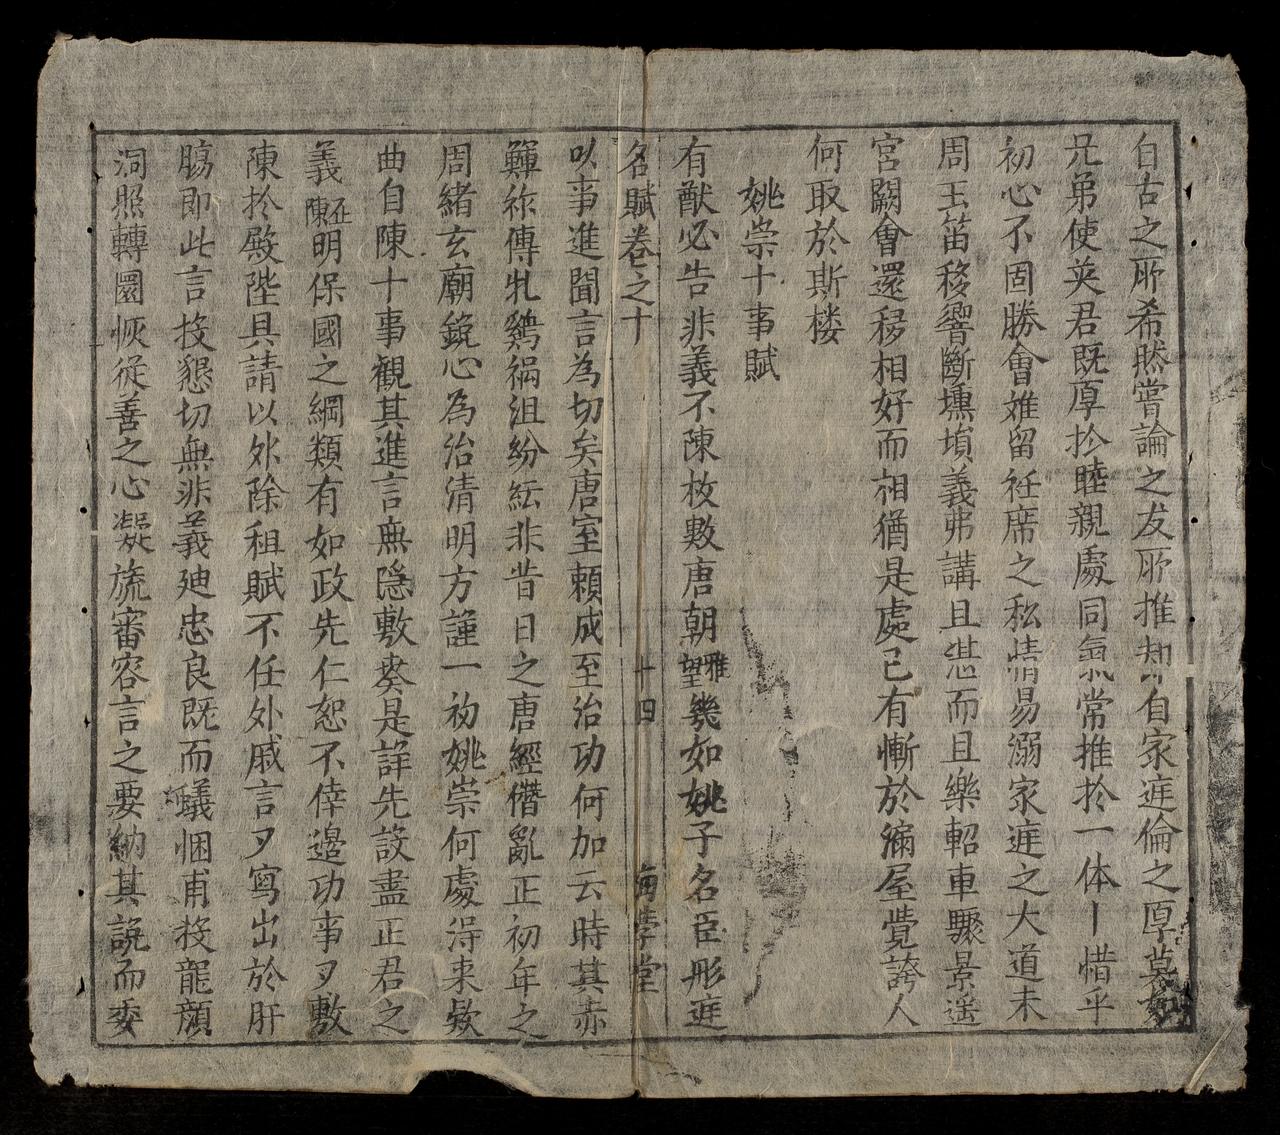 自古之所希然嘗論之友所推却自家庭倫之厚莫
兄弟使英君既厚於睦親處同氣常推於一体丨惜乎
初心不固勝會难留袵席之私情易溺家庭之大道未
周玉笛移響斷壎塤義弗講且湛而且樂軺車驟景遥
宮闕會還移相好而相猶是處已有慚於滿屋覺誇人
何取於斯楼
姚崇十事賦
有猷必告非義不陳枚數唐朝雅望幾如姚子名臣彤庭
名賦卷之十 十四 海學堂
以事進聞言為切矣唐室賴成至治功何加云時其赤
鞸祢傳牝鷄祸沮紛紜非昔日之唐經僭亂正初年之
周緒玄廟銳心為治清明方謹一初姚崇何處淂来欸
曲自陳十事観其進言無隐敷奏是詳先設盡正君之
義丕陳明保國之綱類有如政先仁恕不倖邉功事㕛敷
陳扵殿陛具請以外除租賦不任外戚言㕛寫出於肝
腸即此言投懇切無非義廸忠良既而蟻悃甫投龍顔
洞照轉圜恢従善之心凝旒審容言之要納其説而委